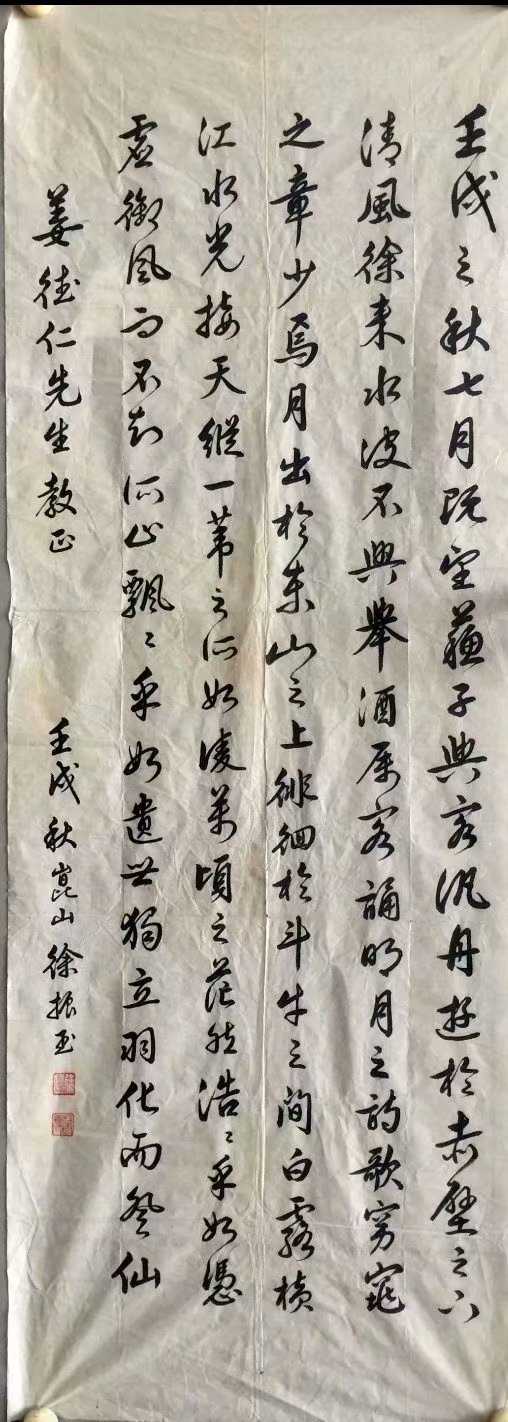 壬戌之秋七月既望蘇子與客汎舟遊於赤壁之下
清風徐來水波不興舉酒属客誦明月之詩歌窈窕
之章少焉月出於東山之上徘徊於斗牛之間白露橫
江水光接天縱一葦之所如凌萬頃之茫然浩〻乎如憑
虛御風而不知所止飄〻乎如遺世獨立羽化而登仙
姜德仁先生教正
壬戌秋崑山徐振玉